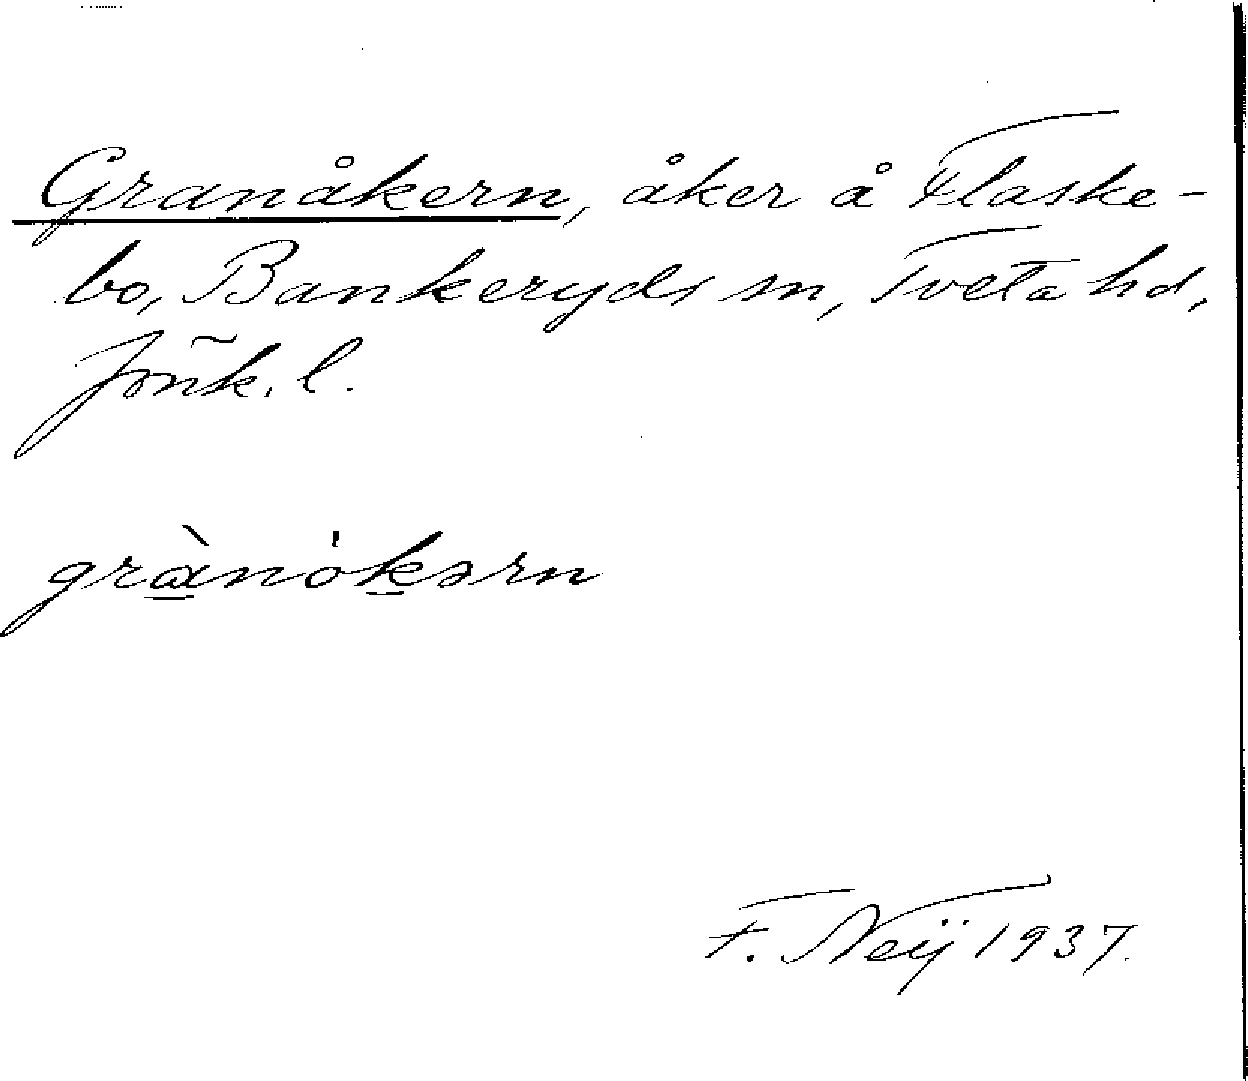 Granåkern, åker å Flaske-
bo, Bankeryds sn, Tveta hd,
Jönk. l.
grànókərn
F. Neÿ 1937.